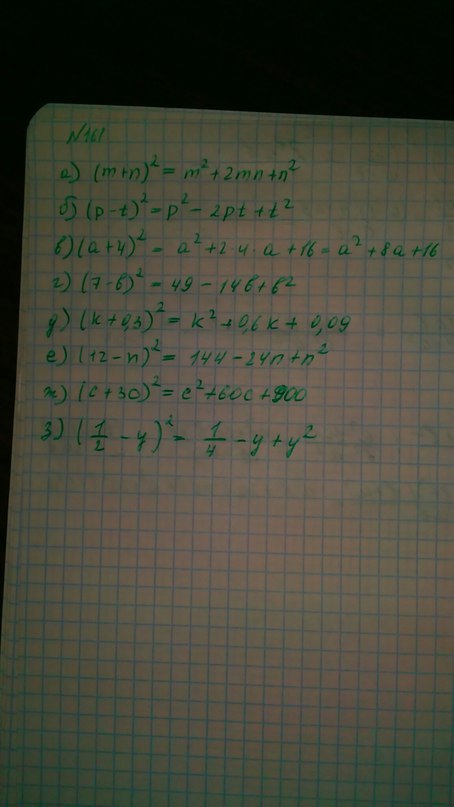 N161
а) (m+n)² = m² + 2mn + n²
б) (p-t)² = p² - 2pt + t²
в) (a+4)² = a² + 2·4·a + 16 = a² + 8a + 16
г) (7-b)² = 49 - 14b + b²
д) (k+0,3)² = k² + 0,6k + 0,09
е) (12-n)² = 144 - 24n + n²
ж) (c+30)² = c² + 60c + 900
з) (1/2 - y)² = 1/4 - y + y²